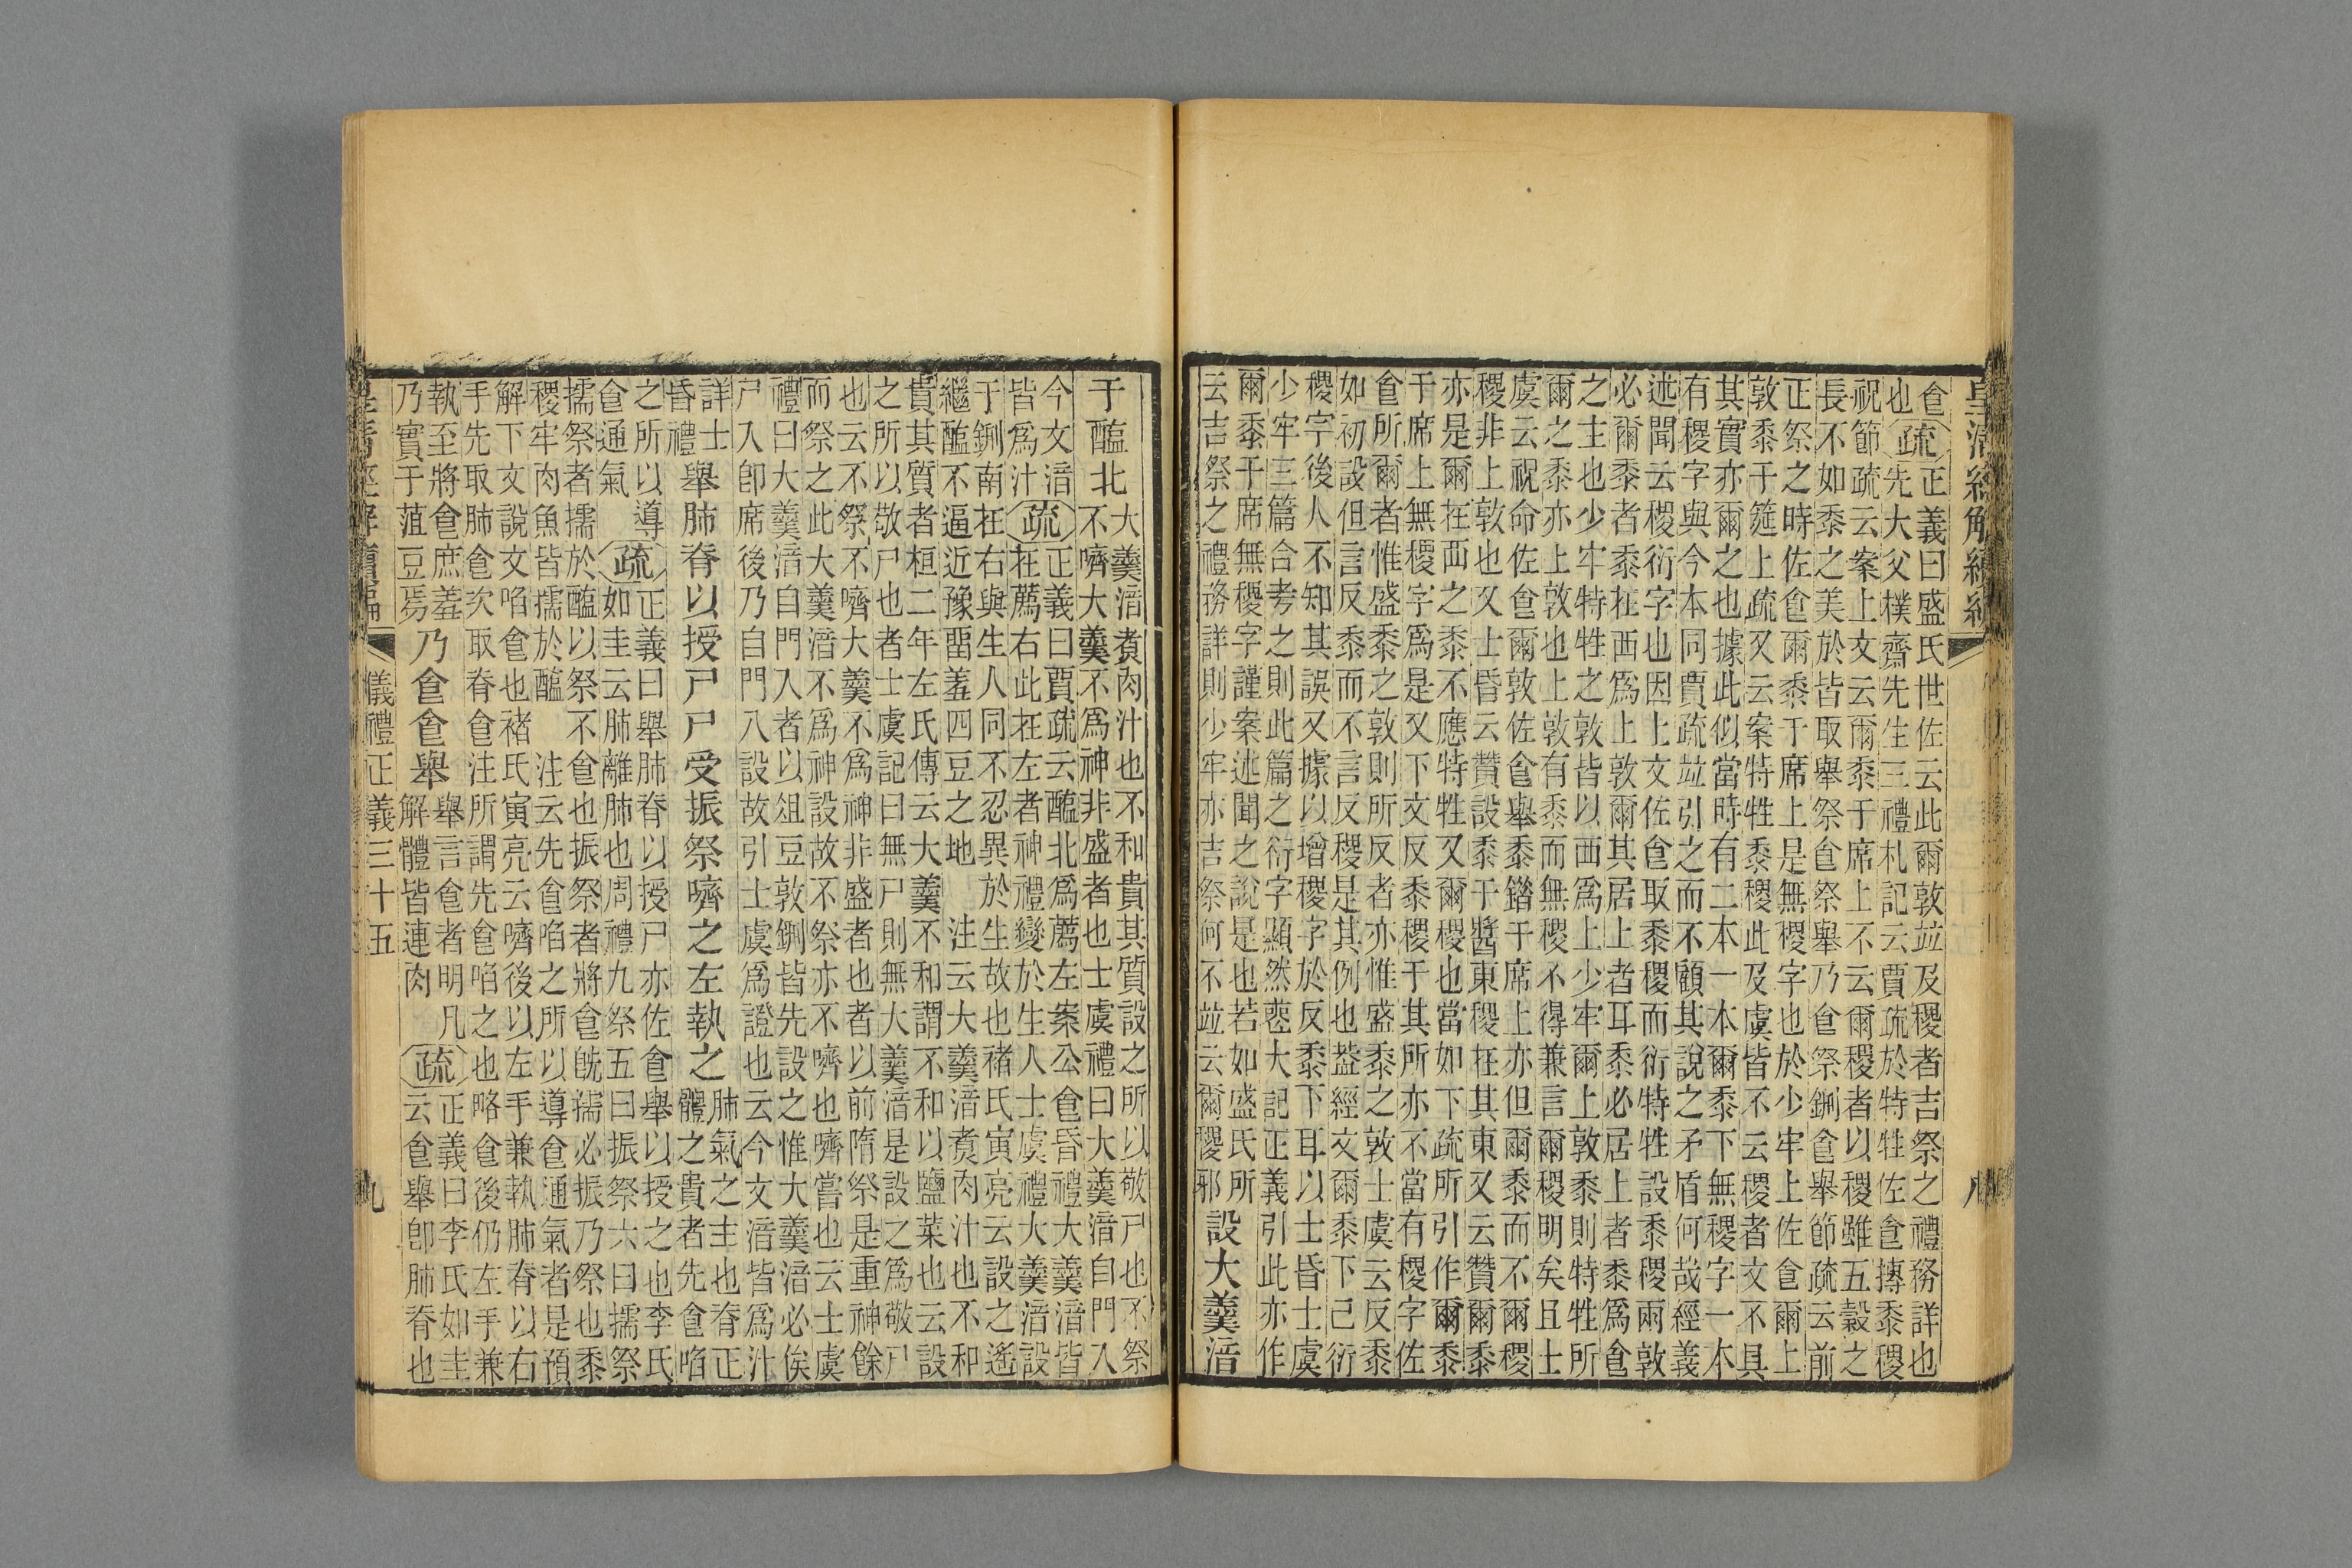 皇清經解續編
八
食正義曰盛氏世佐云此爾敦竝及稷者吉祭之禮務詳也
也疏先大父樸齋先生三禮札記云賈疏於特牲佐食摶黍稷
祝節疏云案上文云爾黍于席上不云爾稷者以稷雖五穀之
長不如黍之美於皆取舉祭食祭舉乃食祭鉶食舉節疏云前
正祭之時佐食爾黍于席上是無稷字也於少牢上佐食爾上
敦黍于筵上疏又云案特牲黍稷此及虞皆不云稷者文不具
其實亦爾之也據此似當時有二本一本爾黍下無稷字一本
有稷字與今本同賈疏竝引之而不顧其說之矛盾何哉經義
述聞云稷衍字也因上文佐食取黍稷而衍特牲設黍稷兩敦
必爾黍者黍在西爲上敦爾其居上者耳黍必居上者黍爲食
之主也少牢特牲之敦皆以西爲上少牢爾上敦黍則特牲所
爾之黍亦上敦也上敦有黍而無稷不得兼言爾稷明矣且士
虞云祝命佐食爾敦佐食舉黍錯于席上亦但爾黍而不爾稷
稷非上敦也又士昏云贊設黍于醬東稷在其東又云贊爾黍
亦是爾在西之黍不應特牲又爾稷也當如下疏所引作爾黍
于席上無稷字爲是又下文反黍稷于其所亦不當有稷字佐
食所爾者惟盛黍之敦則所反者亦惟盛黍之敦士虞云反黍
如初設但言反黍而不言反稷是其例也葢經文爾黍下已衍
稷字後人不知其誤又據以增稷字於反黍下耳以士昏士虞
少牢三篇合考之則此篇之衍字顯然蔥大記正義引此亦作
爾黍于席無稷字謹案述聞之說是也若如盛氏所
云吉祭之禮務詳則少牢亦吉祭何不竝云爾稷邪
設大羹湆
于醢北
大羹湆煑肉汁也不和貴其質設之所以敬尸也不祭
不嚌大羹不爲神非盛者也士虞禮曰大羹湆自門入
今文湆正義曰賈疏云醢北爲薦左案公食昏禮大羹湆皆
皆爲汁疏在薦右此在左者神禮變於生人士虞禮大羹湆設
于鉶南在右與生人同不忍異於生故也褚氏寅亮云設之遙
繼醢不逼近豫畱羞四豆之地 注云大羹湆煑肉汁也不和
貴其質者桓二年左氏傳云大羹不和謂不和以鹽菜也云設
之所以敬尸也者士虞記曰無尸則無大羹湆是設之爲敬尸
也云不祭不嚌大羹不爲神非盛者也者以前隋祭是重神餘
而祭之此大羹湆不爲神設故不祭亦不嚌也嚌嘗也云士虞
禮曰大羹湆自門入者以俎豆敦鉶皆先設之惟大羹湆必俟
尸入卽席後乃自門入設故引士虞爲證也云今文湆皆爲汁
詳士
昏禮
舉肺脊以授尸尸受振祭嚌之左執之
肺氣之主也脊正
體之貴者先食啗
之所以導正義曰舉肺脊以授尸亦佐食舉以授之也李氏
食通氣疏如圭云肺離肺也周禮九祭五曰振祭六曰擩祭
擩祭者擩於醢以祭不食也振祭者將食旣擩必振乃祭也黍
稷牢肉魚皆擩於醢 注云先食啗之所以導食通氣者是預
解下文說文啗食也褚氏寅亮云嚌後以左手兼執肺脊以右
手先取肺食次取脊食注所謂先食啗之也略食後仍左手兼
執至將食庶羞
乃實于菹豆焉
乃食食舉
舉言食者明凡
解體皆連肉
疏正義曰李氏如圭
云食舉卽肺脊也
皇清經解續編
儀禮正義三十五
九